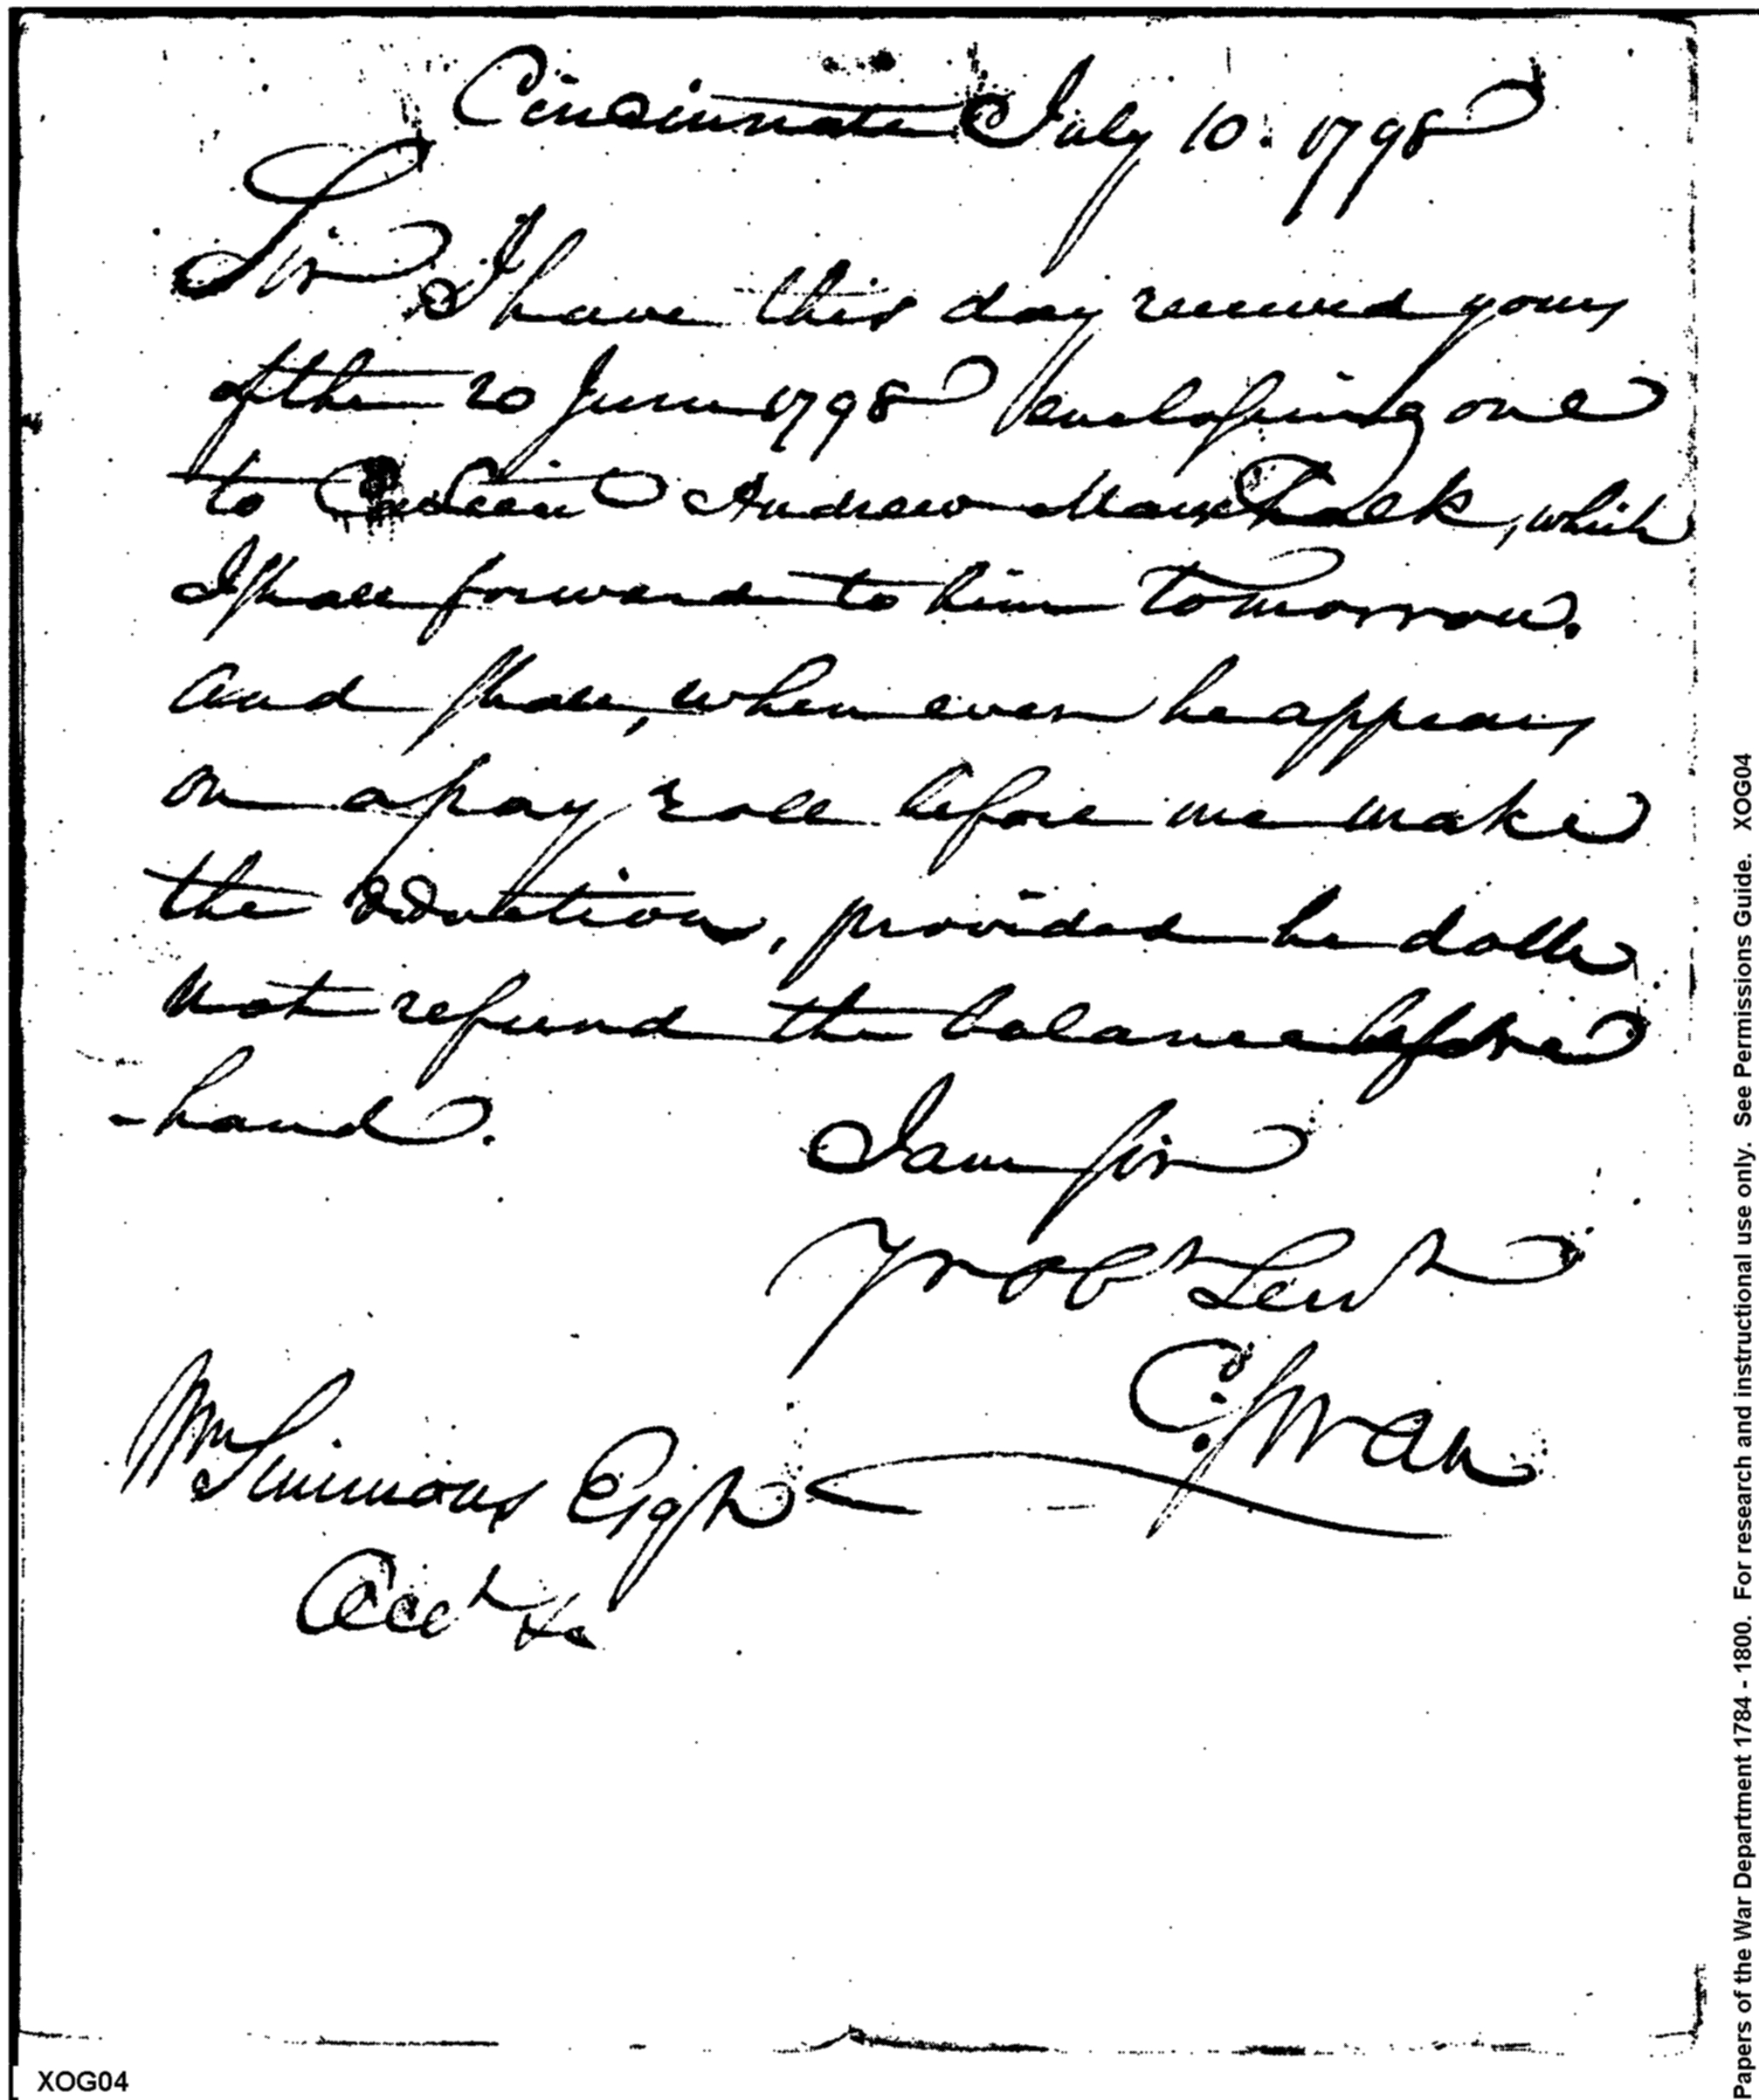 Cincinnati July 10. 1798
Sir
I have this day received yours
of the 20 June 1798 enveloping one
to Andrew Marschalk, which
I shall forward to him tomorrow.
and shall, whenever he appears
on a pay roll before me make
the deduction, provided he doth
not refund the balance before
-hand.
I am sir
Yr obt Servt
C. Swan
Wm Simmons Esqr
Acct &c
XOG04
Papers of the War Department 1784 - 1800. For research and instructional use only. See Permissions Guide. XOG04